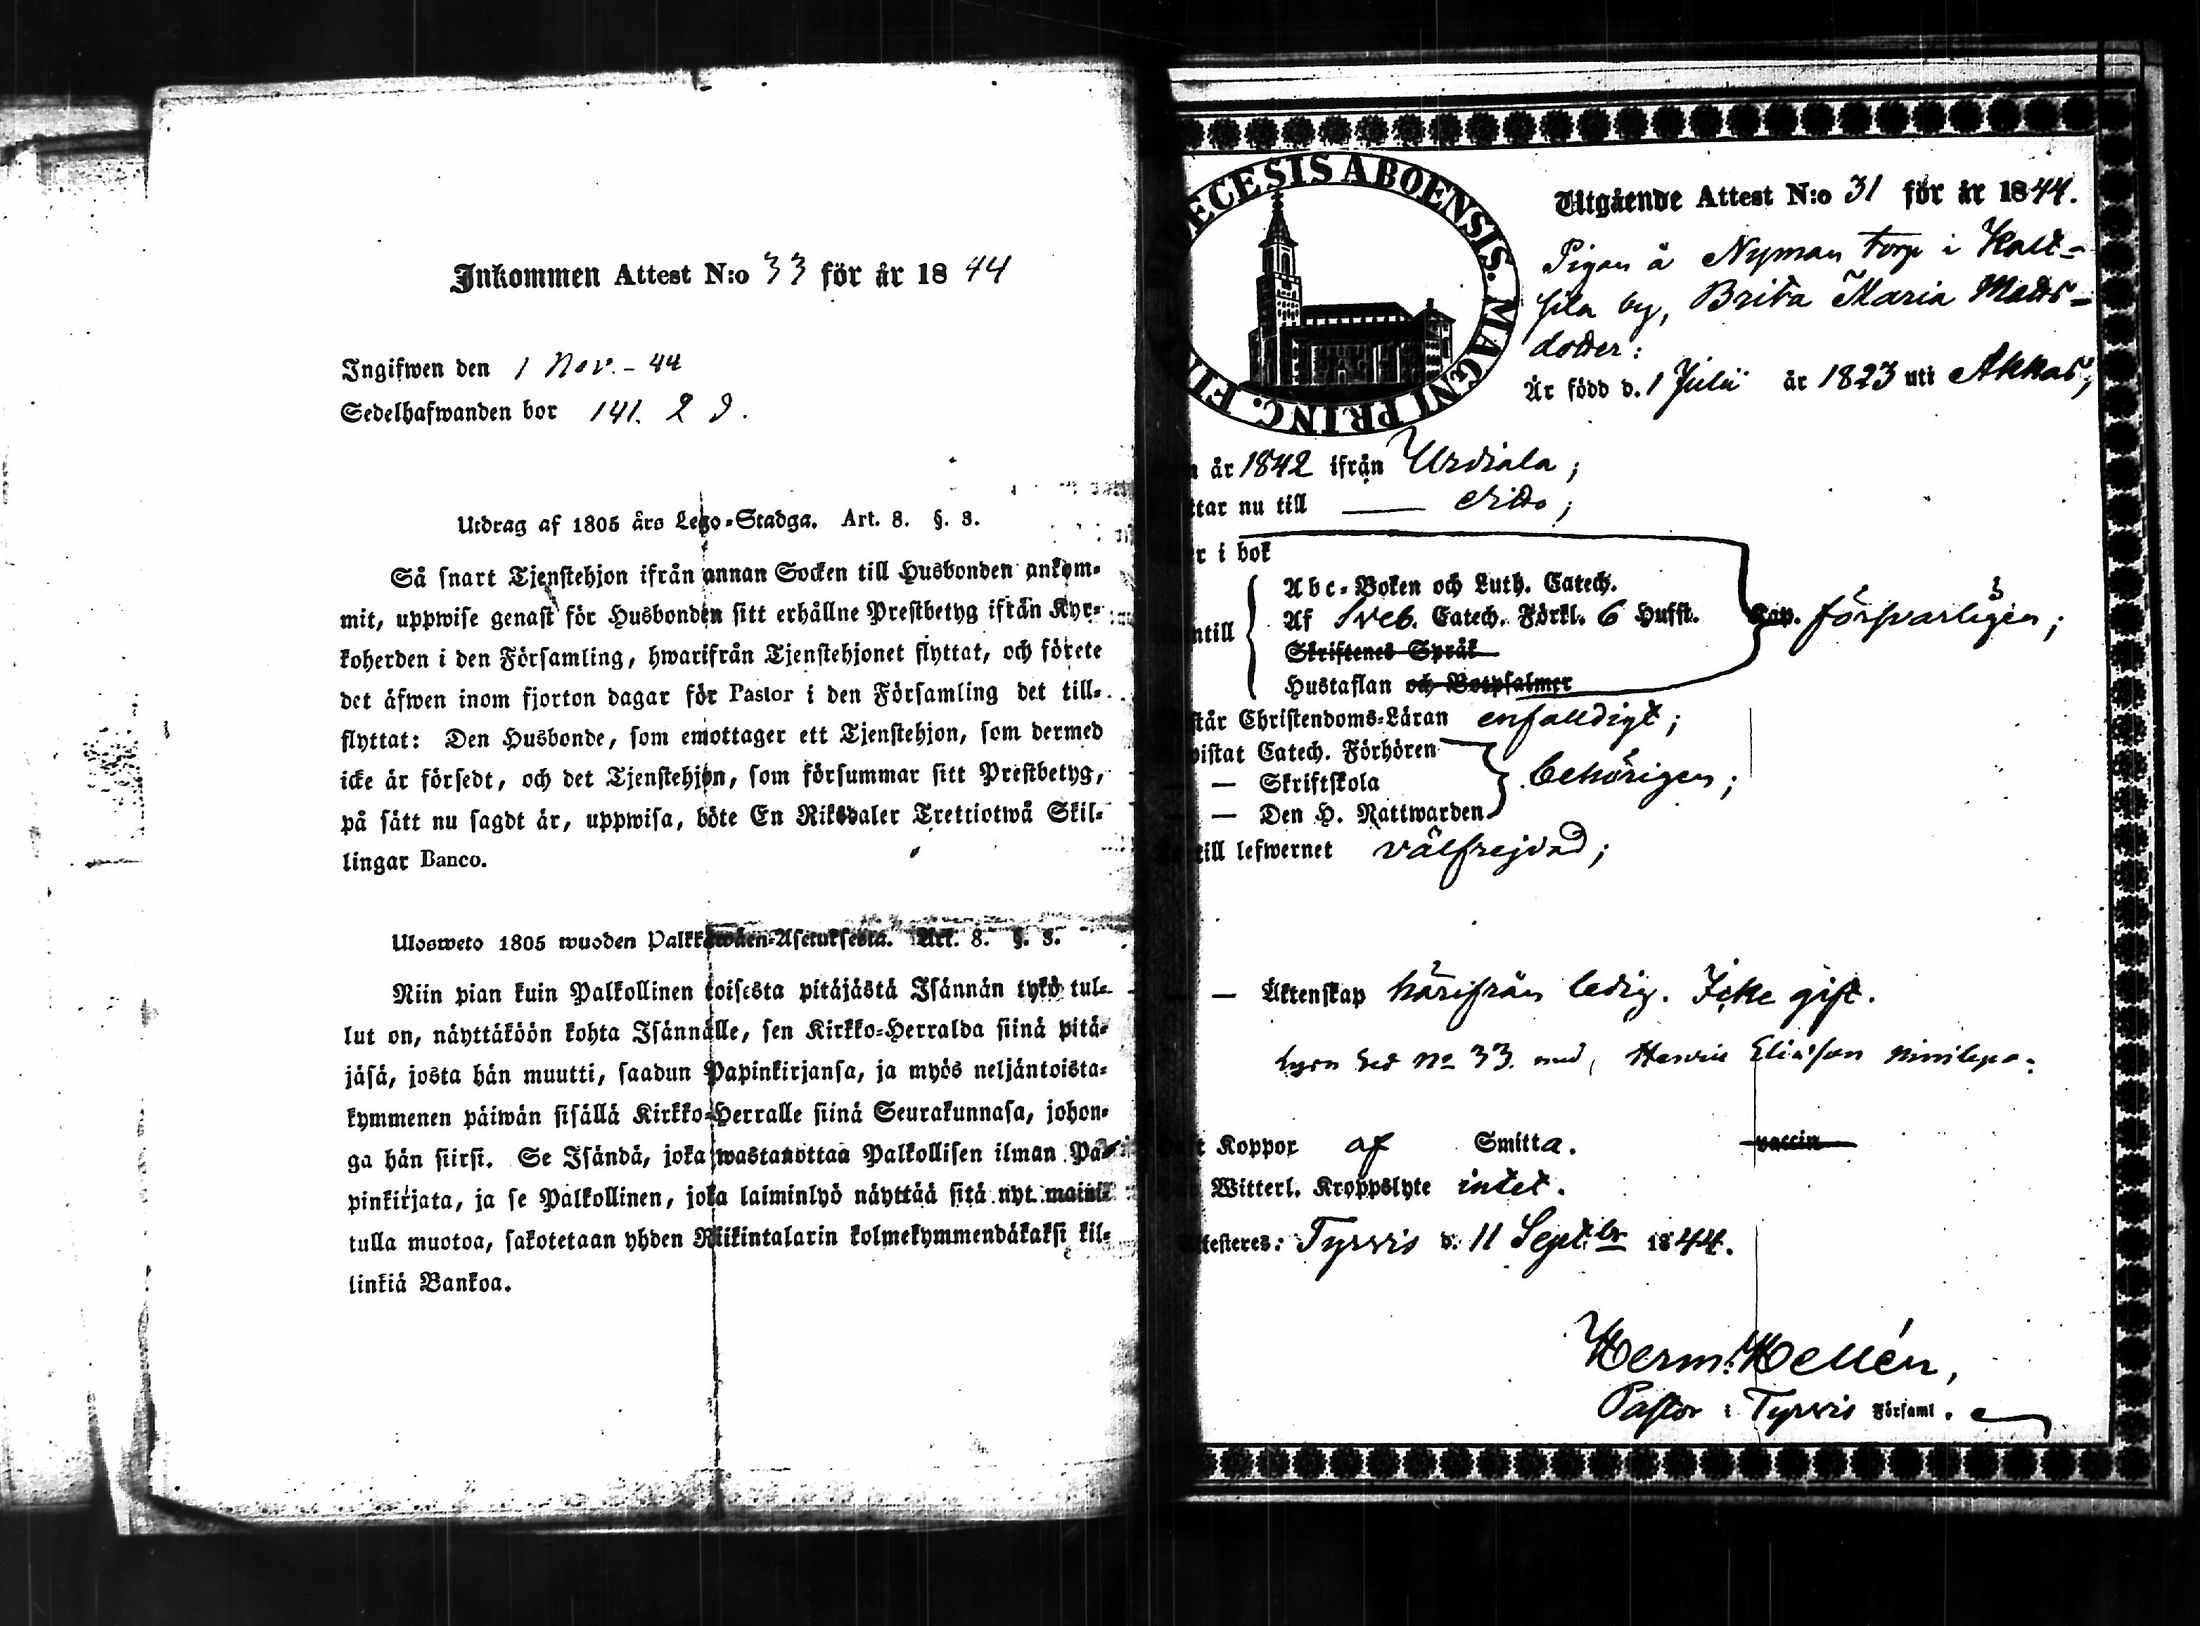 Inkommen Attest N:o 33 för år 1844
Ingifwen den 1 Nov. - 44
Sedelhafwanden bor 141. 2 d.
Utdrag af 1805 års Lego-Stadga. Art. 8. §. 3.
Så snart Tjenstehjon ifrån annan Socken till Husbonden ankom-
mit, uppwise genast för Husbonden sitt erhållne Prestbetyg ifrån Kyr-
koherden i den Församling, hwarifrån Tjenstehjonet flyttat, och förete
det äfwen inom fjorton dagar för Pastor i den Församling det till-
flyttat: Den Husbonde, som emottager ett Tjenstehjon, som dermed
icke är försedt, och det Tjenstehjon, som försummar sitt Prestbetyg,
på sätt nu sagdt är, uppwisa, böte En Riksdaler Trettiotwå Skil-
lingar Banco.
Ulosweto 1805 wuoden Palkkawäen-Asetuksesta. Art. 8. §. 3.
Niin pian kuin Palkollinen toisesta pitäjästä Isännän tykö tul-
lut on, näyttäköön kohta Isännälle, sen Kirkko-Herralda siinä pitä-
jäsä, josta hän muutti, saadun Papinkirjansa, ja myös neljäntoista-
kymmenen päiwän sisällä Kirkko-Herralle siinä Seurakunnasa, johon-
ga hän siirsi. Se Isändä, joka wastanottaa Palkollisen ilman Pa-
pinkirjata, ja se Palkollinen, joka laiminlyö näyttää sitä nyt mainit-
tulla muotoa, sakotetaan yhden Riikintalarin kolmekymmendäkaksi kil-
linkiä Bankoa.
ECESIS ABOENSIS. MAGNI PRINC. FIN
Utgående Attest N:o 31 för år 1844.
Pigan å Nyman torp i Kalt-
sila by, Brita Maria Matts-
dotter:
Är född d. 1 Julii år 1823 uti Akkas;
n år 1842 ifrån Urdiala;
ttar nu till —— dito;
r i bok
ntill
Abc-Boken och Luth. Catech.
Af Sveb. Catech. Förkl. 6 Hufst. Cap. försvarligen;
Skriftenes Språk
Hustaflan och Botpsalmer
står Christendoms-Läran enfaldigt;
vistat Catech. Förhören
— Skriftskola behörigen;
— Den H. Nattwarden
till lefwernet välfrejdad;
— Äktenskap härifrån ledig. Icke gift.
No 33. med, Eliasson
t Koppor af Smitta. vaccin
Witterl. Kroppslyte intet.
testeres: Tyrvis d. 11 Septbr 1844.
Herm. Hellén,
Pastor i Tyrvis Församl.